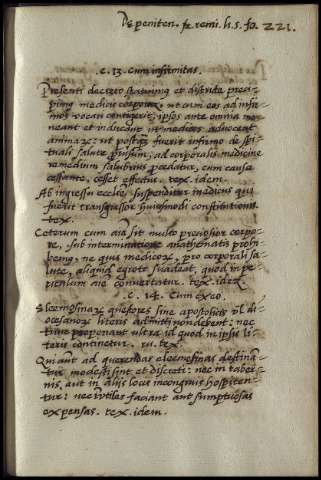 De peniten. & remi. li. 5. fo. 221.
c. 13. Cum infirmitas.
Presenti decreto statuimus et districte preci-
pimus medicis corporum, ut cum eos ad infir-
mos vocari contigerit, ipsos ante omnia mo-
neant et inducant, ut medicos advocent
animarum: ut postquam fuerit infirmo de spi-
rituali salute provisum, ad corporalis medicine
remedium salubrius procedatur, cum causa
cessante, cesset effectus. tex. idem.
Ab ingressu ecclesie suspenditur medicus qui
fuerit transgressor huiusmodi constitutionis.
tex.
Ceterum cum aia sit multo preciosior corpo-
re, sub interminatione anathematis prohi-
bemus, ne quis medicorum, pro corporali sa-
lute, aliquid egroto suadeat, quod in pe-
riculum aie convertatur. tex. idem
c. 14. Cum ex eo.
Eleemosinarum questores sine apostolicis vel di-
ocesanorum literis admitti non debent: nec
proponant ultra id quod in ipsis li-
teris continetur. ru. tex.
Qui aut ad querendas eleemosinas destinan-
tur modesti sint et discreti: nec in taber-
nis, aut in alijs locis incongruis hospiten-
tur: nec inutiles faciant aut sumptuosas
expensas. tex. idem.